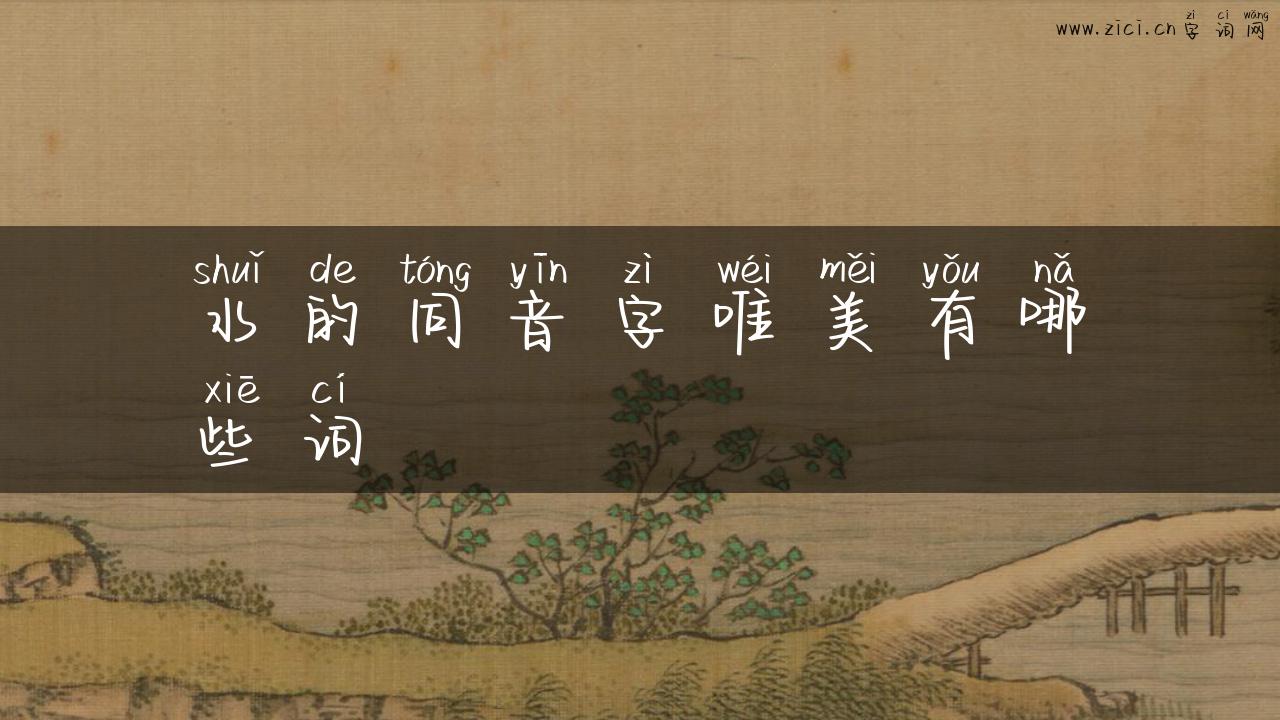 zì cí wǎng
www.zici.cn 字词网
shuǐ de tóng yīn zì wéi měi yǒu nǎ
水的同音字唯美有哪
xiē cí
些词